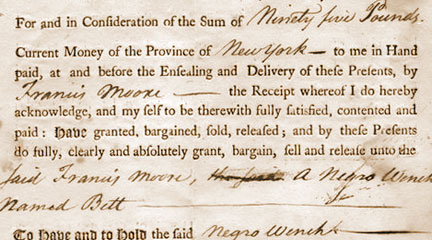 For and in Consideration of the Sum of Ninety five Pounds.
Current Money of the Province of New York — to me in Hand
paid, at and before the Ensealing and Delivery of these Presents, by
Francis Moore — the Receipt whereof I do hereby
acknowledge, and my self to be therewith fully satisfied, contented and
paid: Have granted, bargained, sold, released; and by these Presents
do fully, clearly and absolutely grant, bargain, sell and release unto the
said Francis Moore, the said A Negro Wench
Named Bett —
To Have and to Hold the said Negro Wench —